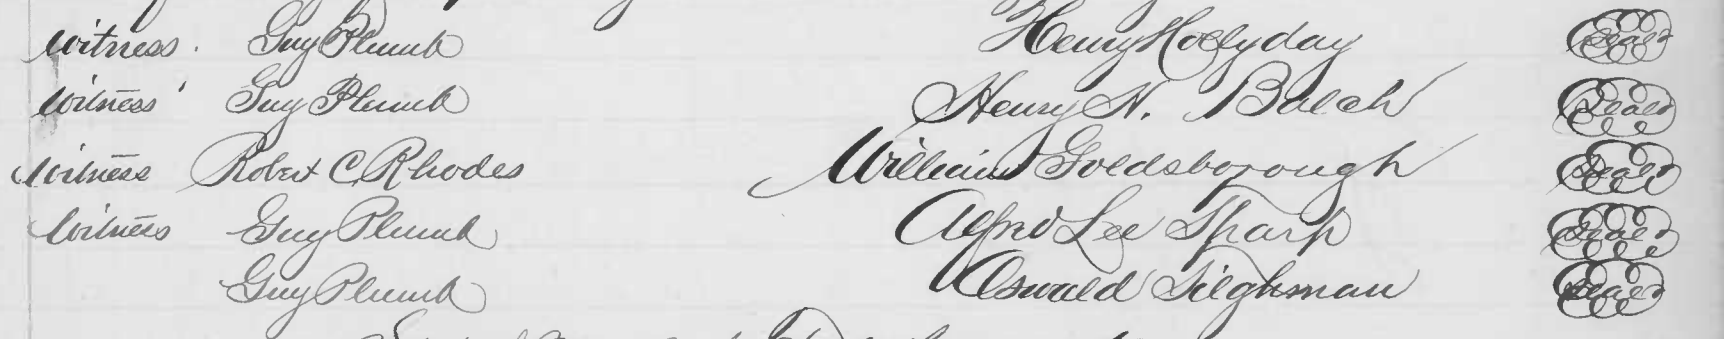 witness. Guy Plumb Henry Hollyday Seal
witness Guy Plumb Henry N. Balch Seal
witness Robert C. Rhodes William Goldsborough Seal
witness Guy Plumb Alfred Lee Tharp Seal
Guy Plumb Oswald Tilghman Seal